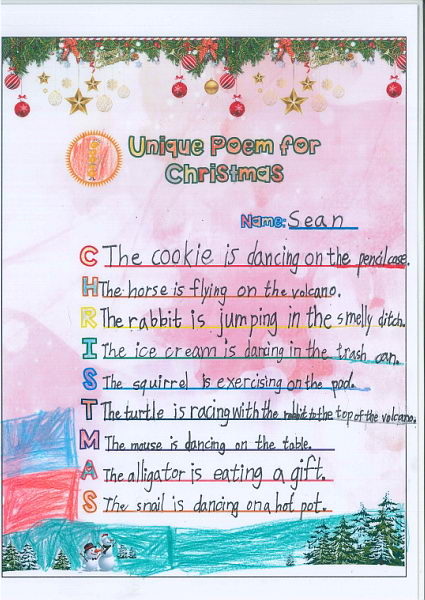 Unique Poem for
Christmas
Name: Sean
C The cookie is dancing on the pencil case.
H The horse is flying on the volcano.
R The rabbit is jumping in the smelly ditch.
I The ice cream is dancing in the trash can.
S The squirrel is exercising on the pool.
T The turtle is racing with the rabbit to the top of the volcano.
M The mouse is dancing on the table.
A The alligator is eating a gift.
S The snail is dancing on a hot pot.